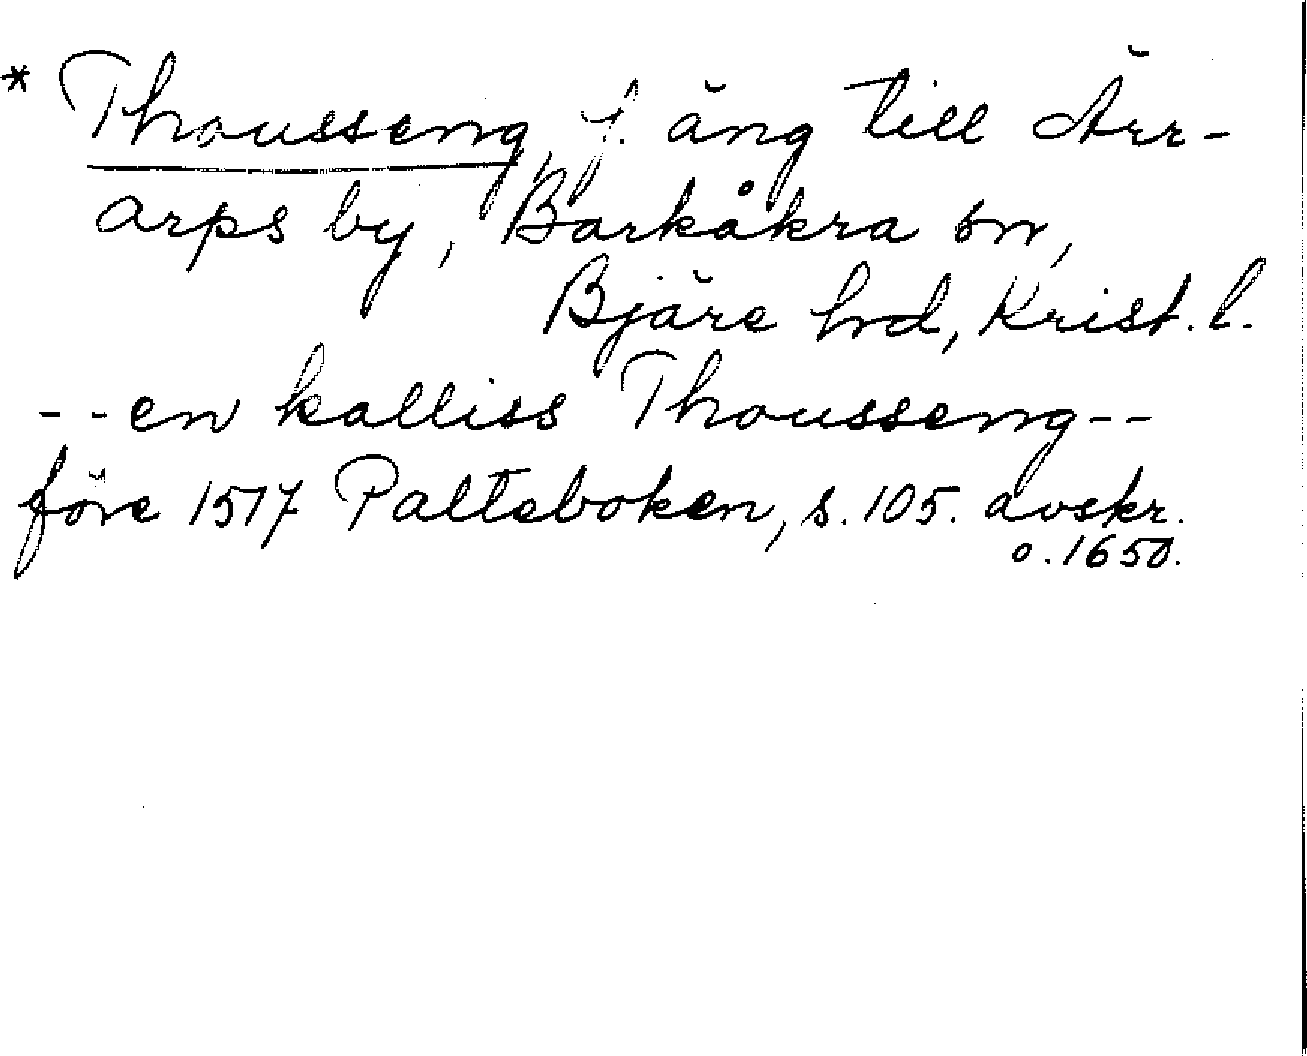 * Thousseng, f. äng till Ärr-
arps by, Barkåkra sn,
Bjäre hd, Krist. l.
- - en kalliss Thousseng - -
före 1517 Palteboken, s. 105. avskr.
o. 1650.